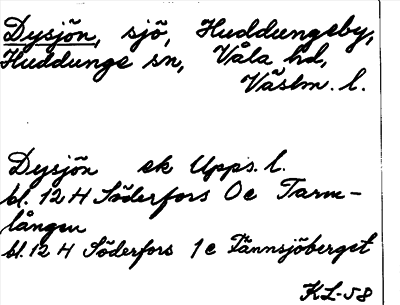 Dysjön, sjö, Huddungeby,
Huddunge sn, Våla hd,
Västm. l.
Dysjön ek Upps. l.
bl. 12 H Söderfors 0e Tarm-
lången
bl. 12 H Söderfors 1e Tännsjöberget
KL-58